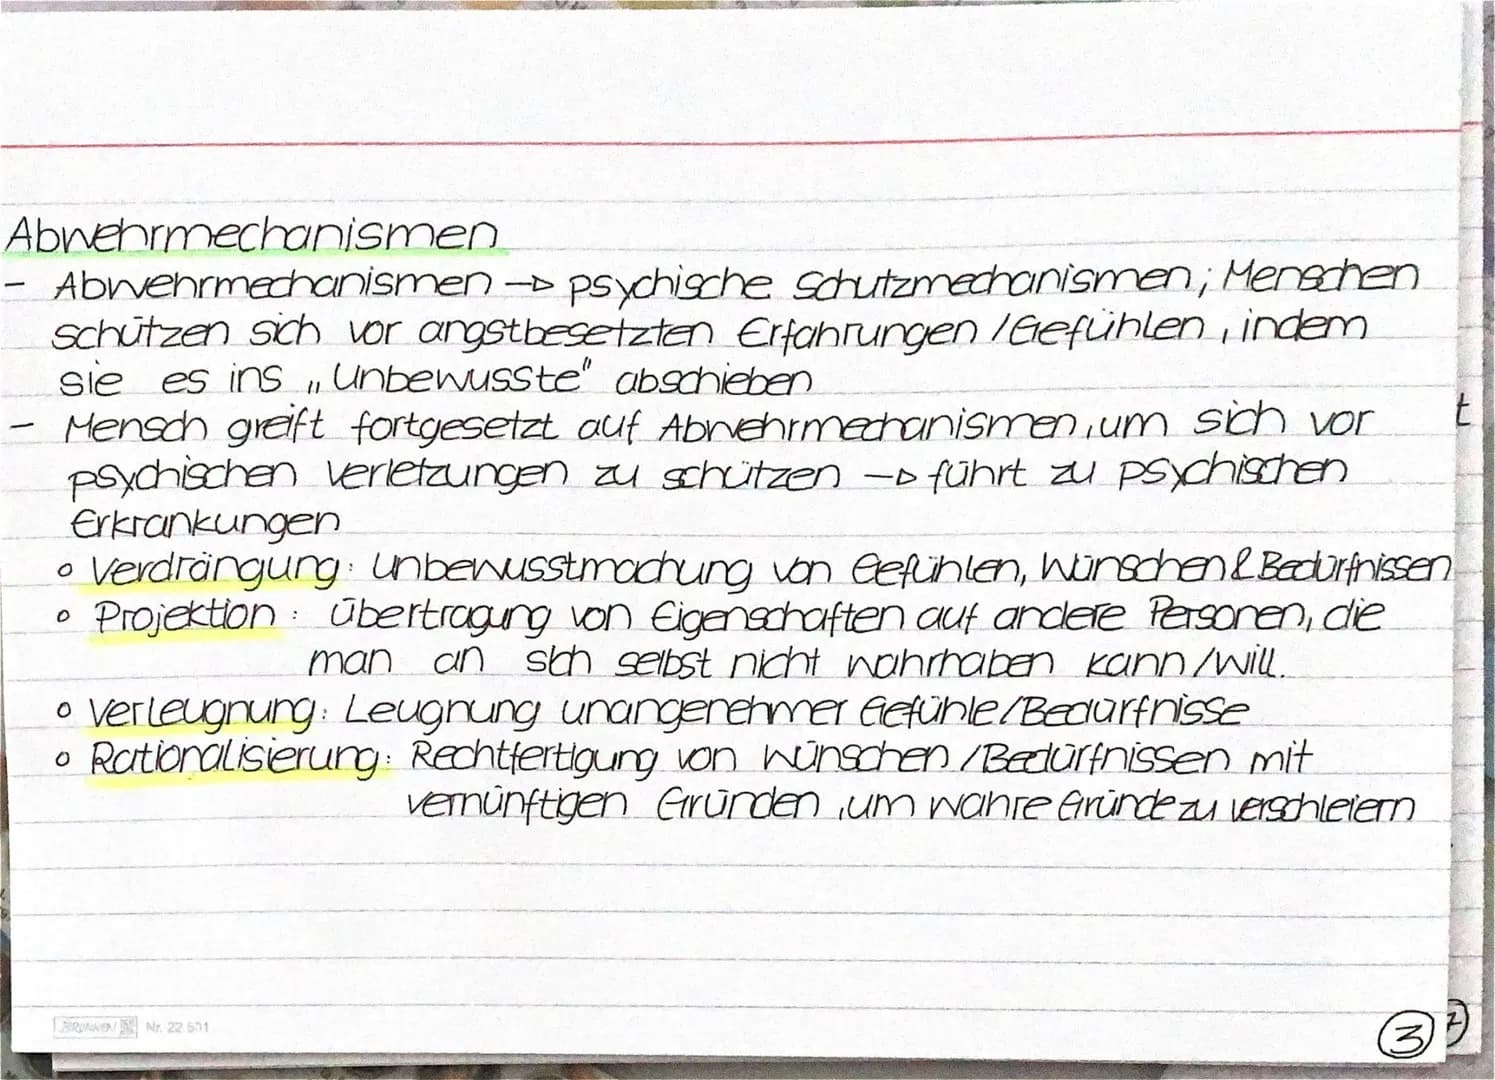 Abwehrmechanismen
- Abwehrmechanismen → psychische Schutzmechanismen; Menschen
schützen sich vor angstbesetzten Erfahrungen / Gefühlen, indem
sie es ins „Unbewusste" abschieben
- Mensch greift fortgesetzt auf Abwehrmechanismen, um sich vor
psychischen Verletzungen zu schützen → führt zu psychischen
Erkrankungen
o Verdrängung: Unbewusstmachung von Gefühlen, Wünschen & Bedürfnissen
o Projektion: Übertragung von Eigenschaften auf andere Personen, die
man an sich selbst nicht wahrhaben kann/will.
o Verleugnung: Leugnung unangenehmer Gefühle/Bedürfnisse
o Rationalisierung: Rechtfertigung von Wünschen/Bedürfnissen mit
vernünftigen Gründen, um wahre Gründe zu verschleiern
t
BRUNNEN Nr. 22 501
3
2